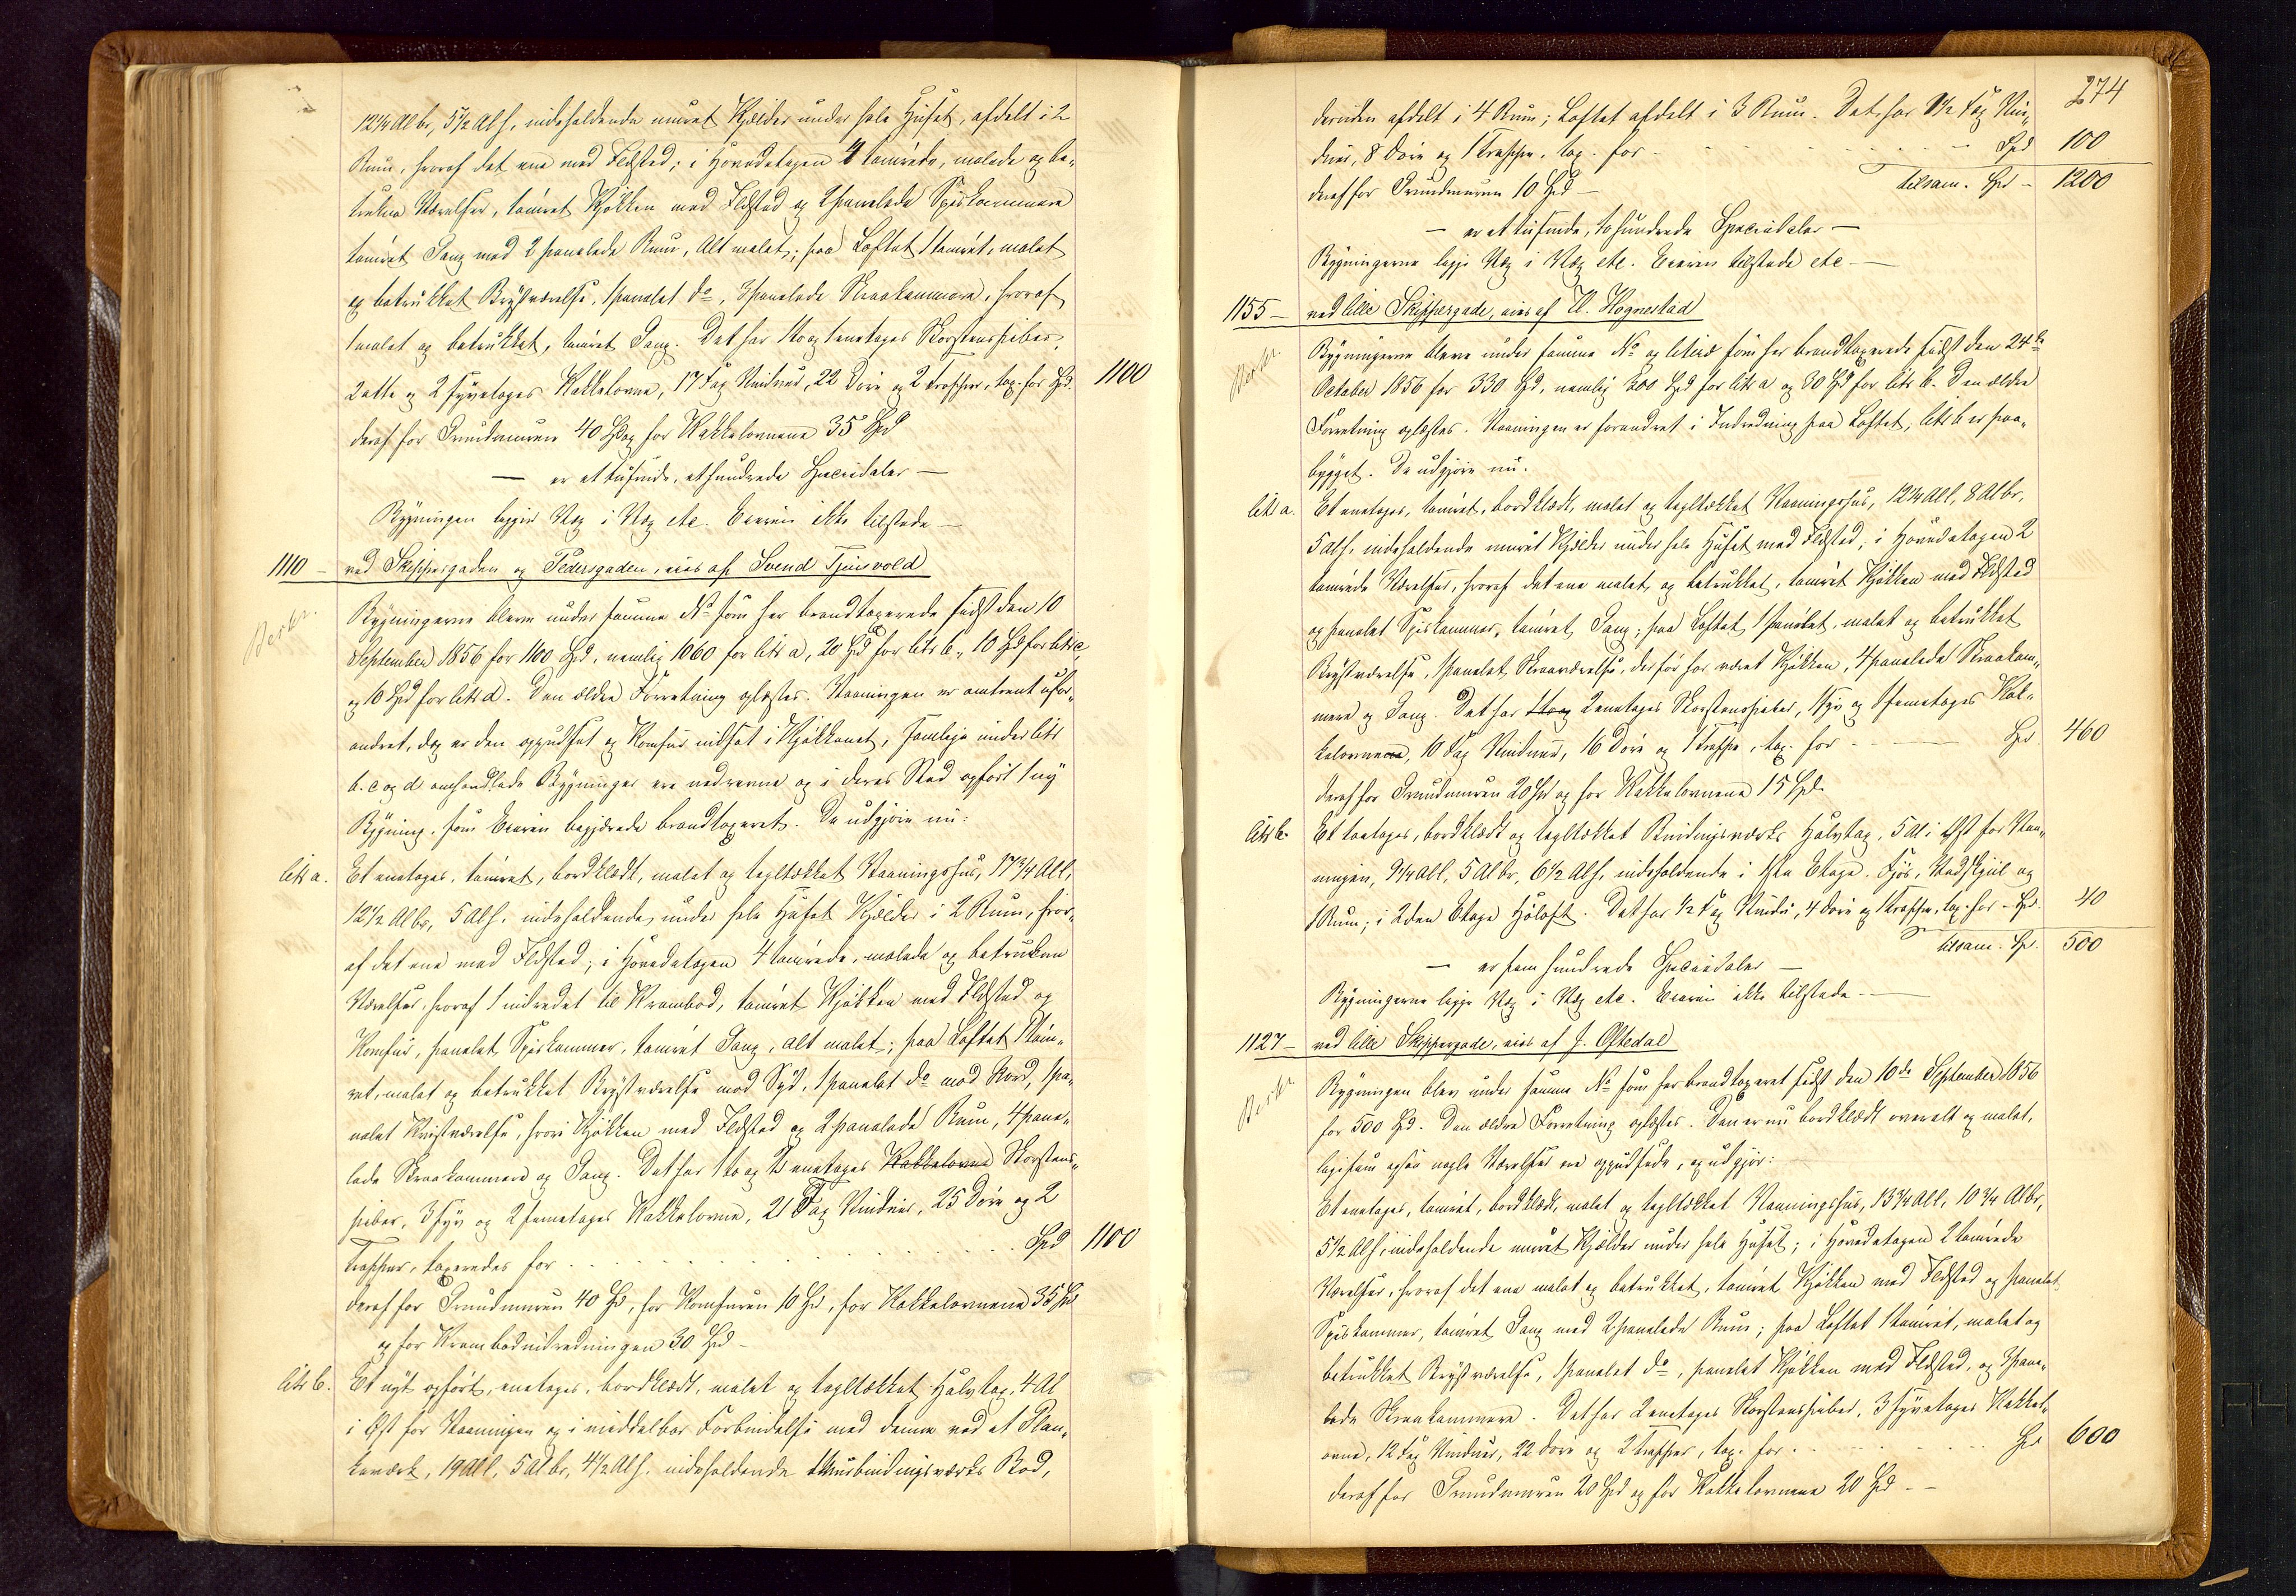 12 1/4 Al br, 5 1/2 Al h, indeholdende muret Kjælder under hele Huset, afdelt i 2
Rum, hvoraf det ene med Ildsted; i Hovedetagen 4 tømrede, malede og be-
trukne Værelser, tømret Kjøkken med Ildsted og 2 panelede Spiskammere
tømret Gang med 2 panelede Rum, Alt malet; paa Loftet 1 tømret, malet
og betrukket Brystværelse, 1 panelet do, 3 panelede Skraakammere, hvoraf
1 malet og betrukket, tømret Gang. Det har 1 to og 1 enetages Skorstenspiber,
2 otte og 2 syvetages Kakkelovne, 17 Fag Vinduer, 22 Døre og 2 Trapper, tax. for Spd. 1100
deraf for Grundmuren 40 Spd og for Kakkelovnene 35 Spd
— er et tusinde, et hundrede Speciedaler —
Bygningen ligger Væg i Væg etc. Eieren ikke tilstede —
1110 — ved Skippergaden og Pedersgaden, eies af Svend Tjensvold
Bygningerne bleve under samme No som her brandtaxerede sidst den 10
September 1856 for 1100 Spd, nemlig 1060 for litr a, 20 Spd for litr b, 10 Spd for litr c
og 10 Spd for litr d. Den ældre Forretning oplæstes. Vaaningen er omtrent ufor-
andret, dog er den oppudset og Komfur indsat i Kjøkkenet, samtlige under litr
b. c og d omhandlede Bygninger ere nedrevne og i deres Sted opført 1 ny
Bygning, som Eieren begjærede brandtaxeret. De udgjøre nu:
litr a. Et enetages, tømret, bordklædt, malet og tegltækket Vaaningshus, 17 3/4 Al l,
12 1/2 Al br, 5 Al h, indeholdende under hele Huset Kjælder i 2 Rum, hvor-
af det ene med Ildsted; i Hovedetagen 4 tømrede, malede og betrukne
Værelser, hvoraf 1 indredet til Krambod, tømret Kjøkken med Ildsted og
Komfur, panelet Spiskammer, tømret Gang, alt malet; paa Loftet 1 tøm-
ret, malet og betrukket Brystværelse mod Syd, 1 panelet do mod Nord, 1 pa-
nelet Kvistværelse, hvori Kjøkken med Ildsted og 2 panelede Rum, 4 pane-
lede Skraakammere og Gang. Det har 1 to og 2 enetages Kakkelovne Skorstens-
piber, 3 syv og 2 femetages Kakkelovne, 21 Fag Vinduer, 25 Døre og 2
Trapper, taxeredes for . . . . . . Spd 1100
deraf for Grundmuren 40 Spd, for Komfuren 10 Spd, for Kakkelovnene 35 Spd
og for Krambodindredningen 30 Spd —
litr b. Et nyt opført, enetages, bordklædt, malet og tegltækket Halvtag, 4 Al
i Øst for Vaaningen og i middelbar Forbindelse med denne ved et Plan-
keværk, 19 Al l, 5 Al br, 4 1/2 Al h, indeholdende 1 Murbindingsværks Bod,
274
desuden afdelt i 4 Rum; Loftet afdelt i 3 Rum. Det har 3 1/2 Fag Vin-
duer, 8 Døre og 1 Trappe, tax. for — Spd 100
deraf for Grundmuren 10 Spd — tilsam. Spd — 1200
— er et tusinde, to hundrede Speciedaler —
Bygningerne ligge Væg i Væg etc. Eieren tilstede etc —
1155 — ved lille Skippergade, eies af U. Hognestad
Bygningerne bleve under samme No og literæ som her brandtaxerede sidst den 24de
October 1856 for 330 Spd, nemlig 300 Spd for litr a og 30 Spd for litr b. Den ældre
Forretning oplæstes. Vaaningen er forandret i Indredning paa Loftet, litr b er paa-
bygget. De udgjøre nu.
litr a. Et enetages, tømret, bordklædt, malet og tegltækket Vaaningshus, 12 1/4 Al l, 8 Al br,
5 Al h, indeholdende muret Kjælder under hele Huset med Ildsted; i Hovedetagen 2
tømrede Værelser, hvoraf det ene malet og betrukket, tømret Kjøkken med Ildsted
og panelet Spiskammer, tømret Gang; paa Loftet 1 panelet, malet og betrukket
Brystværelse, 1 panelet Skraaværelse, der før har været Kjøkken, 4 panelede Skraakam-
mere og Gang. Det har 1 to og 2 enetages Skorstenspiber, 1 syv og 1 femetages Kak-
kelovne, 10 Fag Vinduer, 16 Døre og 1 Trappe, tax. for — Spd 460
deraf for Grundmuren 20 Spd og for Kakkelovnene 15 Spd.
litr b. Et toetages, bordklædt og tegltækket Bindingsværks Halvtag, 5 Al i Øst for Vaa-
ningen, 9 1/4 Al l, 5 Al br, 6 1/2 Al h, indeholdende i 1ste Etage Fjøs, Vedskjul og
1 Rum; i 2den Etage Høloft. Det har 1/2 Fag Vindu, 4 Døre og 1 Trappe, tax. for — Spd. 40
tilsam. Sp. 500
— er fem hundrede Speciedaler —
Bygningerne ligge Væg i Væg etc. Eieren ikke tilstede. —
1127 — ved lille Skippergade, eies af J. Oftedal
Bygningen blev under samme No som her brandtaxeret sidst den 10de September 1856
for 500 Spd. Den ældre Forretning oplæstes. Den er nu bordklædt overalt og malet,
ligesom ogsaa nogle Værelser ere oppudsede, og udgjør:
Et enetages, tømret, bordklædt, malet og tegltækket Vaaningshus, 13 3/4 Al l, 10 3/4 Al br,
5 1/2 Al h, indeholdende muret Kjælder under hele Huset; i Hovedetagen 2 tømrede
Værelser, hvoraf det ene malet og betrukket, tømret Kjøkken med Ildsted og panelet
Spiskammer, tømret Gang med 2 panelede Rum; paa Loftet 1 tømret, malet og
betrukket Brystværelse, 1 panelet do, panelet Kjøkken med Ildsted, og 3 pane-
lede Skraakammere. Det har 2 enetages Skorstenspiber, 3 syvetages Kakkel-
ovne, 12 Fag Vinduer, 22 Døre og 2 Trapper, tax. for . . . Spd 600
deraf for Grundmuren 20 Spd og for Kakkelovnene 20 Spd. —